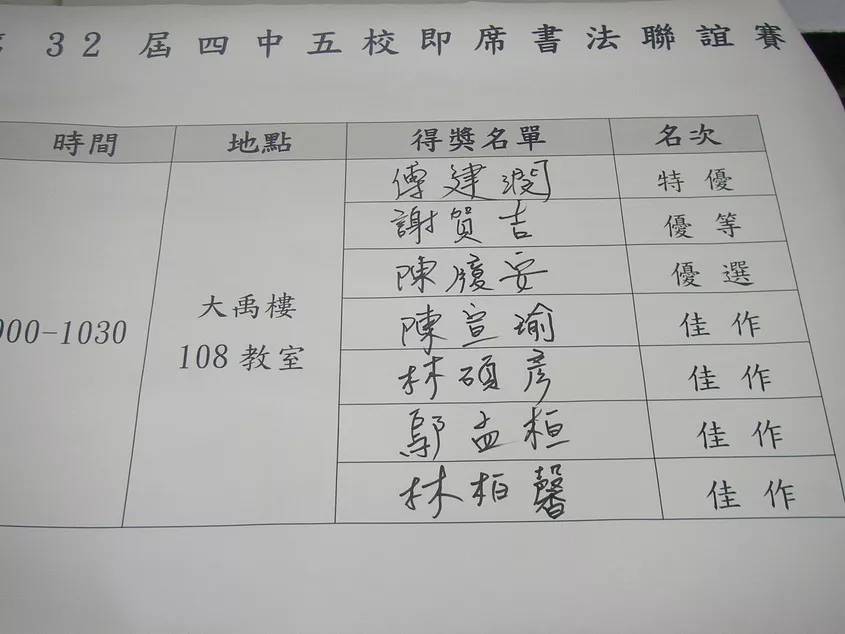 第 32 屆四中五校即席書法聯誼賽
時間 地點 得獎名單 名次
傅建潤 特優
謝賀吉 優等
陳履安 優選
大禹樓
陳宣瑜 佳作
00-1030
108 教室
林碩彥 佳作
鄔孟桓 佳作
林柏馨 佳作